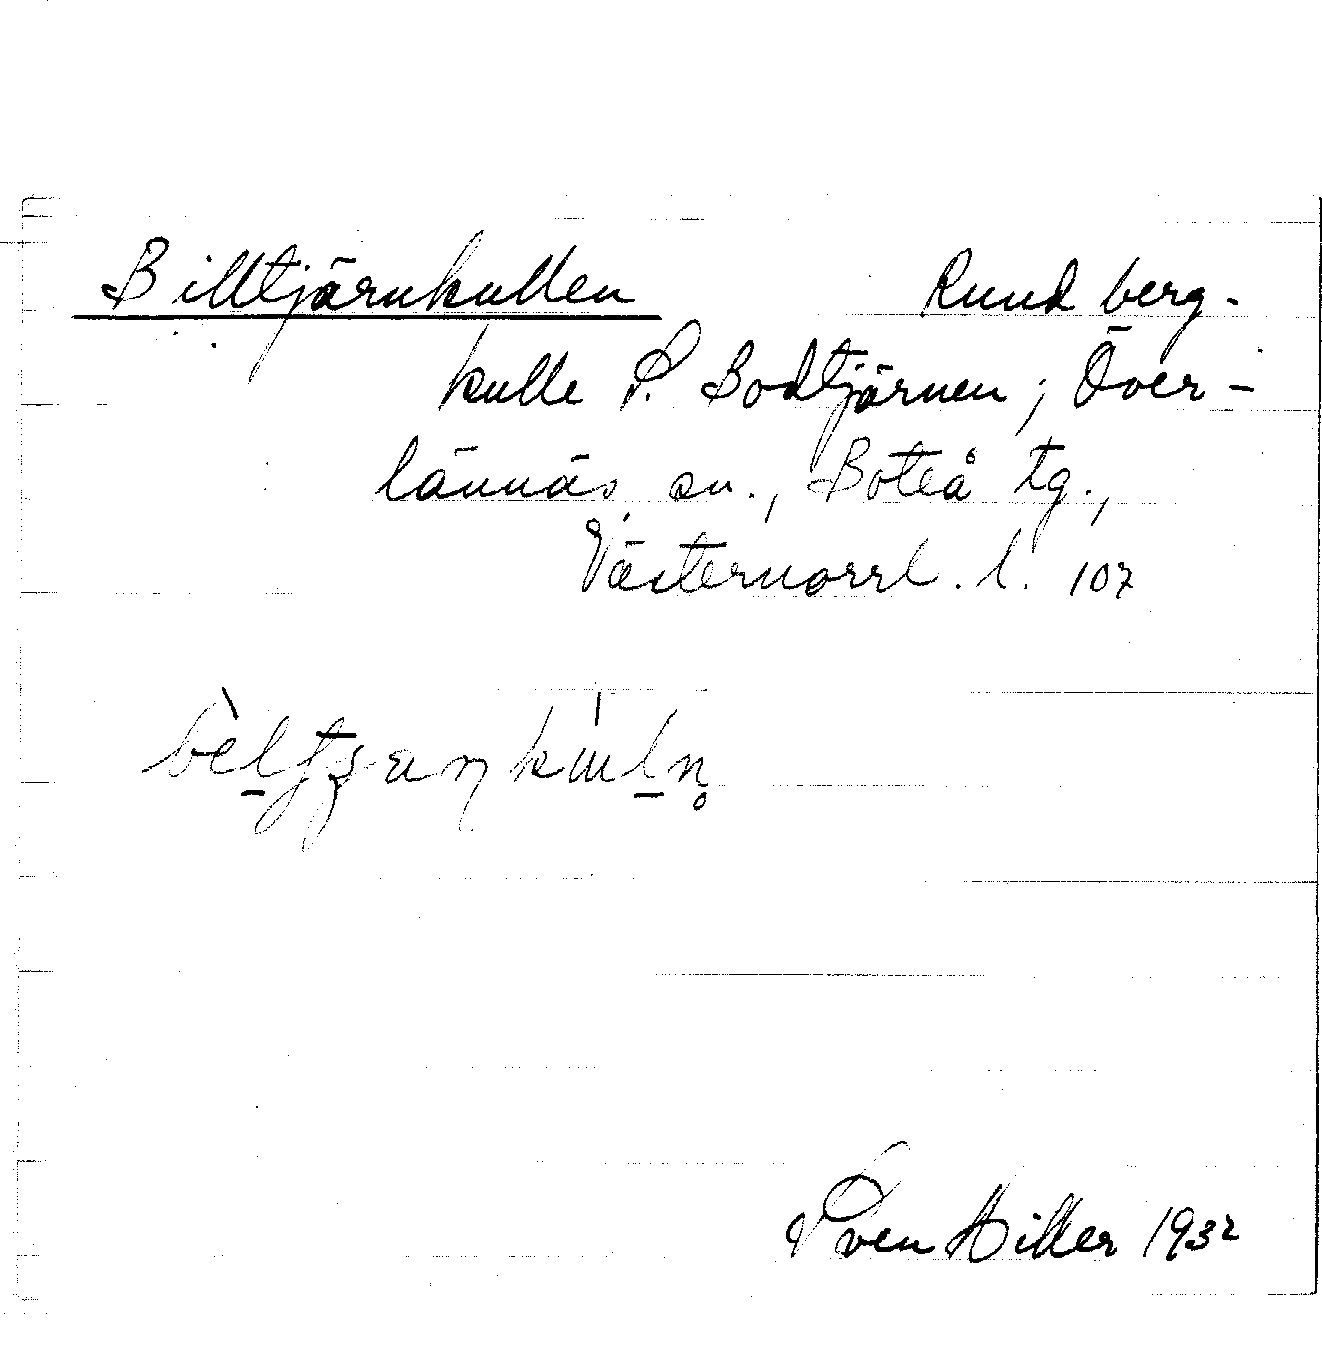 Billtjärnkullen Rund berg-
kulle S. Bodtjärnen; Över-
lännäs sn., Boteå tg.,
Västernorrl. l. 107
Sven Hiller 1932